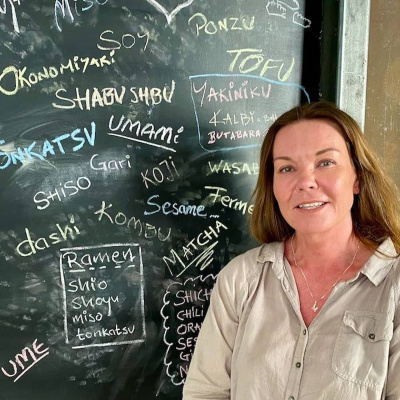 MISO
PONZU
SOY
OKONOMIYAKI
TOFU
SHABU SHBU
YAKINIKU
KALBI
BUTABARA
UMAMI
Gari
KOJI
WASAB
SHISO
Sesame
Ferme
dashi
KOMBU
MATCHA
Ramen
Shio
Shoyu
miso
tonkatsu
SHICH
CHILI
UME